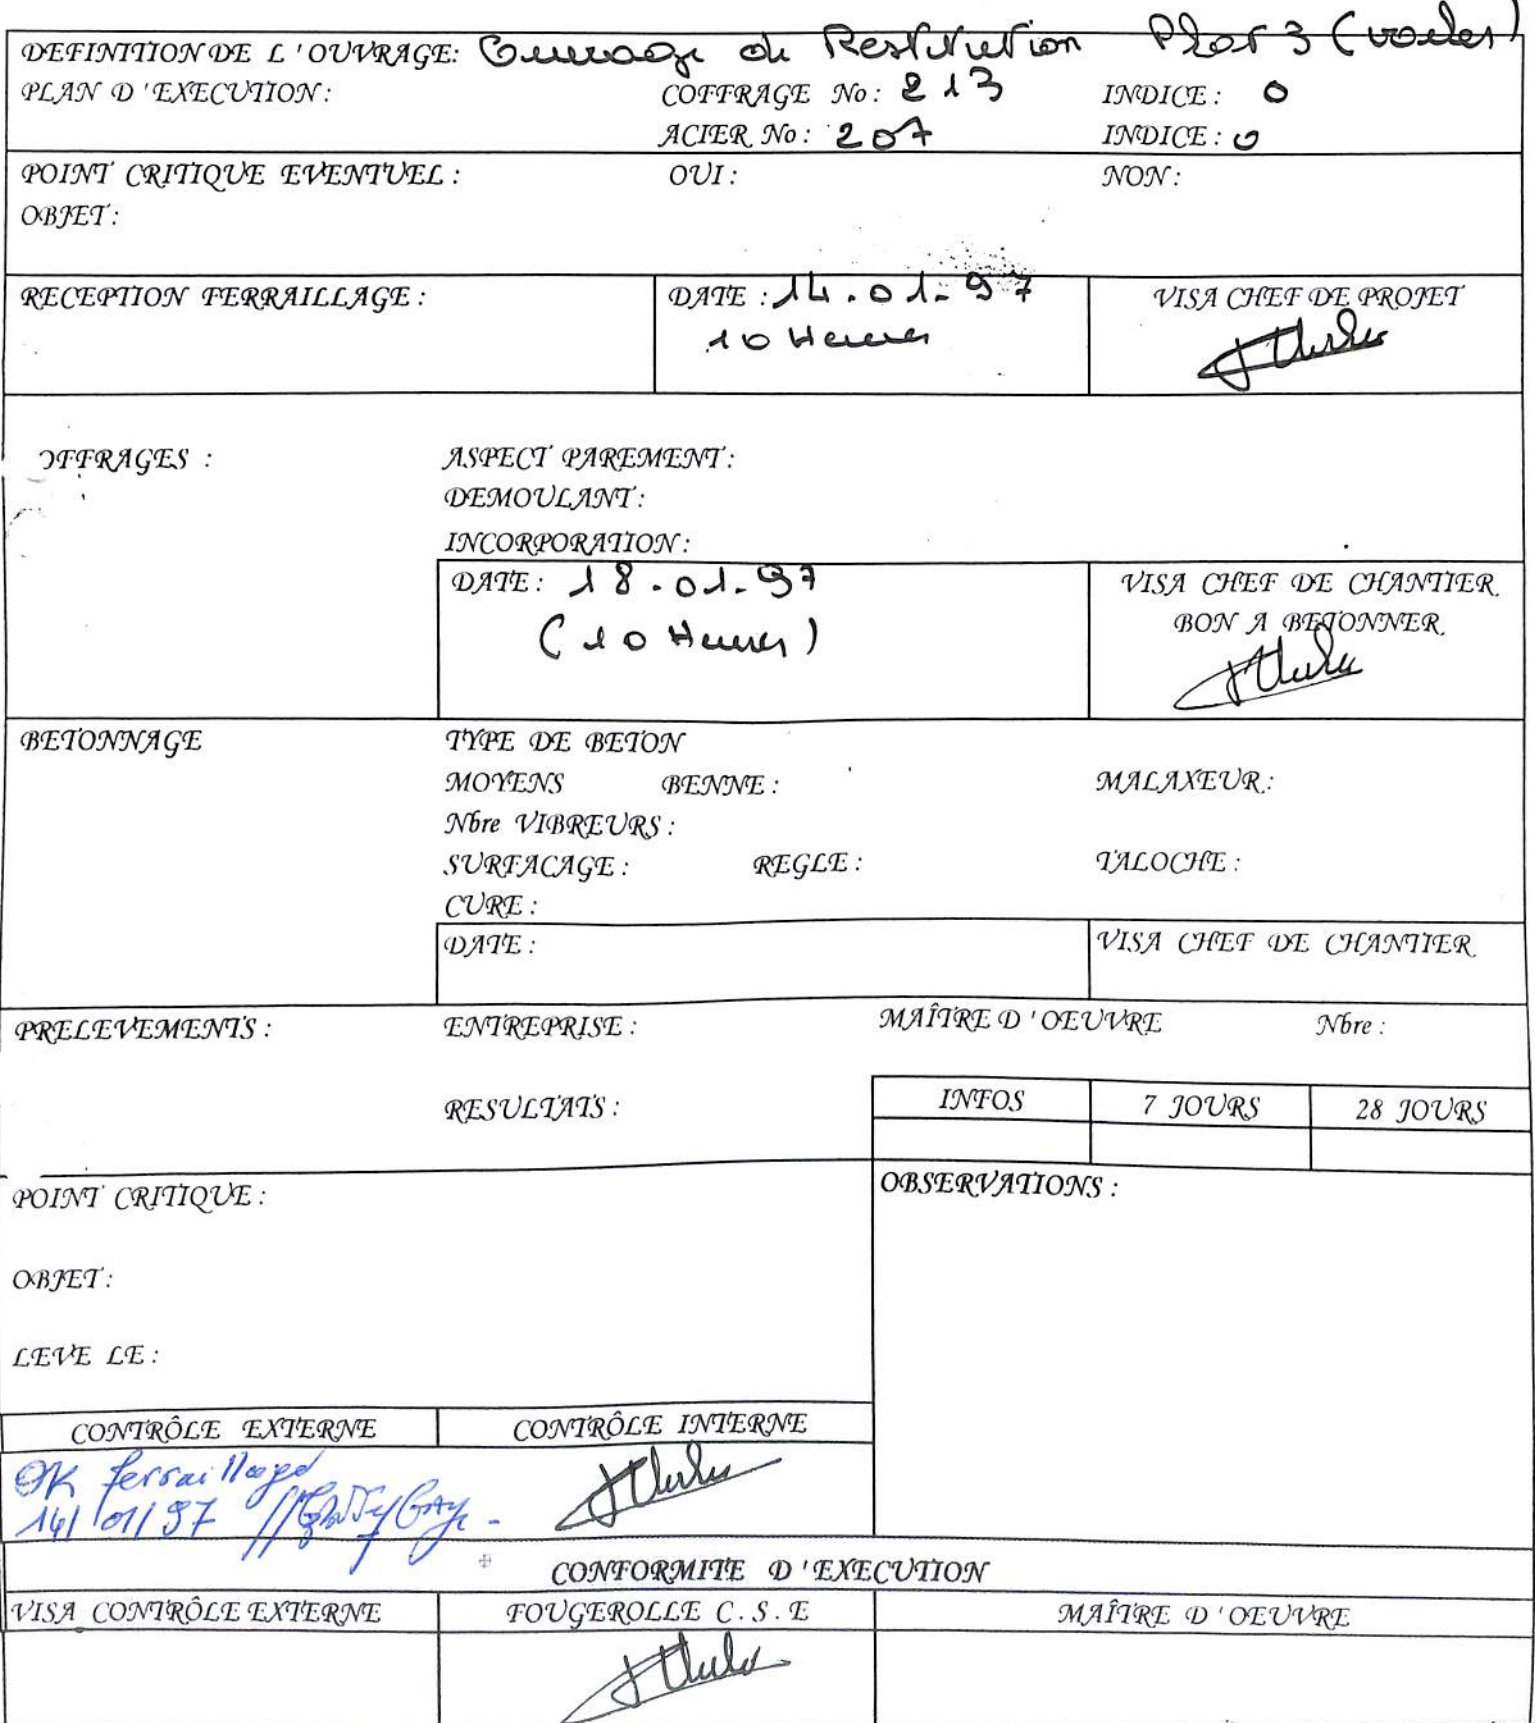 DEFINITION DE L'OUVRAGE: Ouvrage de Restitution Plot 3 (voiles)
PLAN D'EXECUTION: COFFRAGE No: 213 INDICE: 0
ACIER No: 207 INDICE: 0
POINT CRITIQUE EVENTUEL: OUI: NON:
OBJET:
RECEPTION FERRAILLAGE: DATE: 14.01.97 VISA CHEF DE PROJET
10 Heures
OFFRAGES : ASPECT PAREMENT:
DEMOULANT:
INCORPORATION:
DATE: 18.01.97 VISA CHEF DE CHANTIER
(10 Heures) BON A BETONNER
BETONNAGE TYPE DE BETON
MOYENS BENNE: MALAXEUR:
Nbre VIBREURS:
SURFACAGE: REGLE: TALOCHE:
CURE:
DATE: VISA CHEF DE CHANTIER
PRELEVEMENTS: ENTREPRISE: MAÎTRE D'OEUVRE Nbre:
RESULTATS: INFOS 7 JOURS 28 JOURS
POINT CRITIQUE: OBSERVATIONS:
OBJET:
LEVE LE:
CONTRÔLE EXTERNE CONTRÔLE INTERNE
OK ferraillage
14/01/97
CONFORMITE D'EXECUTION
VISA CONTRÔLE EXTERNE FOUGEROLLE C.S.E MAÎTRE D'OEUVRE